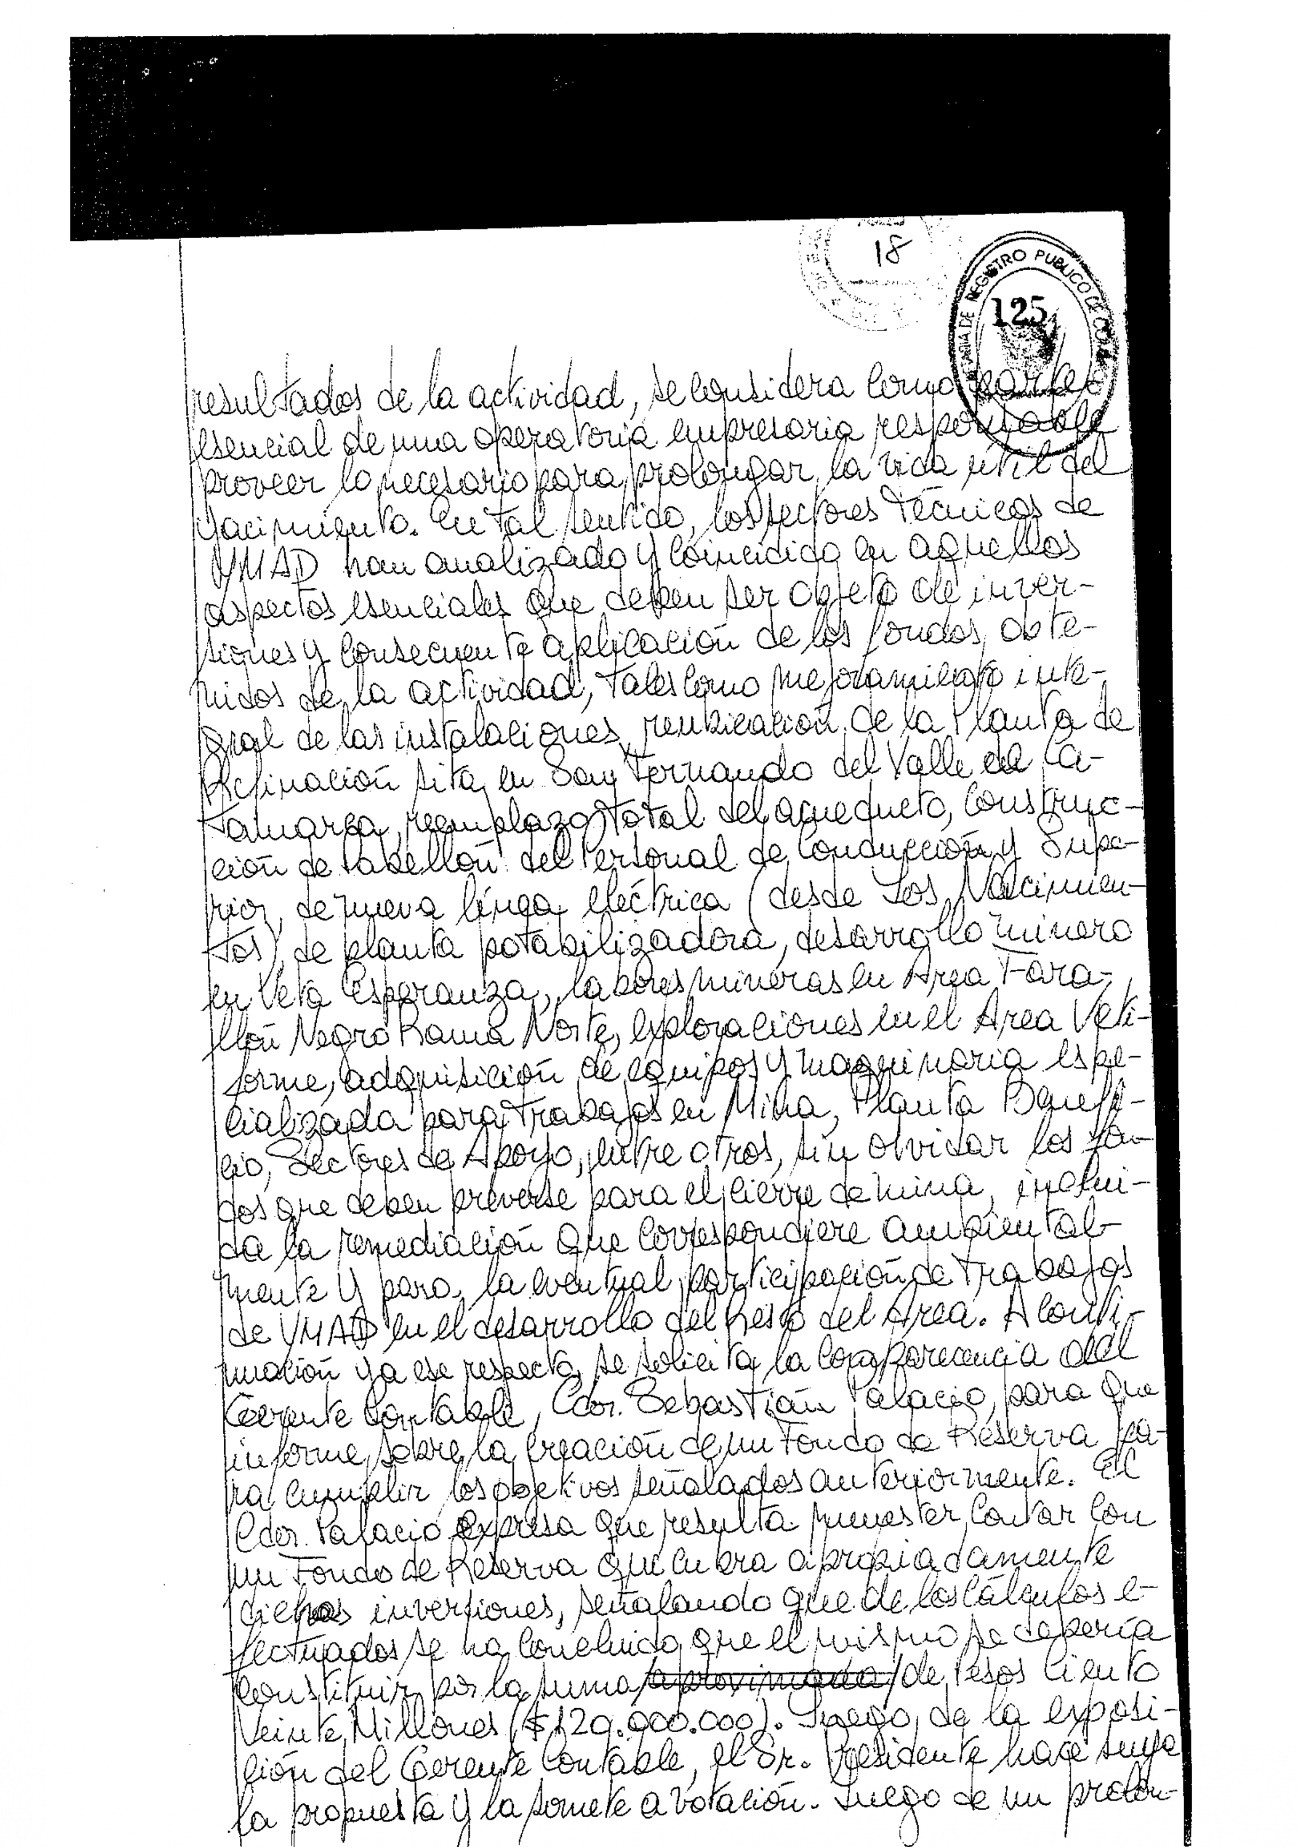 18
REGISTRO PUBLICO DE
125
resultados de la actividad, se considera como parte
esencial de una operatoria empresaria responsable
proveer lo necesario para prolongar la vida útil del
yacimiento. En tal sentido, los sectores técnicos de
YMAD han analizado y coincidido en aquellos
aspectos esenciales que deben ser objeto de inver-
siones y consecuente aplicación de los fondos obte-
nidos de la actividad, tales como mejoramiento inte-
gral de las instalaciones, reubicación de la Planta de
Refinación sita en San Fernando del Valle de Ca-
tamarca, reemplazo total del acueducto, construc-
ción de Pabellón del Personal de Conducción y Supe-
rior, de nueva línea eléctrica (desde Los Nacimien-
tos), de planta potabilizadora, desarrollo minero
en Veta Esperanza, labores mineras en Area Fara-
llón Negro Rama Norte, exploraciones en el Area Veti-
forme, adquisición de equipos y maquinaria espe-
cializada para trabajos en Mina, Planta Benefi-
cio, Sectores de Apoyo, entre otros, sin olvidar los fon-
dos que deben preverse para el cierre de mina, inclui-
da la remediación que correspondiere ambiental-
mente y para la eventual participación de trabajos
de YMAD en el desarrollo del Resto del Area. A conti-
nuación y a ese respecto, se solicita la comparecencia del
Gerente Contable, Cdor. Sebastián Palacio, para que
informe sobre la creación de un Fondo de Reserva pa-
ra cumplir los objetivos señalados anteriormente. El
Cdor. Palacio expresa que resulta menester contar con
un Fondo de Reserva que cubra apropiadamente
dichas inversiones, señalando que de los cálculos e-
fectuados se ha concluido que el mismo se debería
constituir por la suma /aproximada/ de Pesos Ciento
Veinte Millones ($120.000.000). Luego de la exposi-
ción del Gerente Contable, el Sr. Presidente hace suya
la propuesta y la somete a votación. Luego de un prolon-